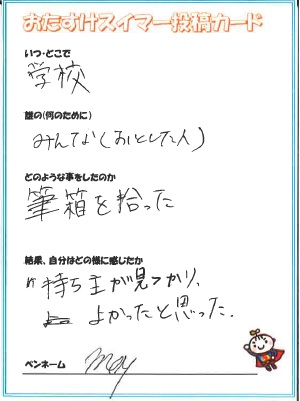 おたすけスイマー投稿カード
いつ・どこで
学校
誰の(何のために)
みんな(おとした人)
どのような事をしたのか
筆箱を拾った
結果、自分はどの様に感じたか
持ち主が見つかり、
よかったと思った.
ペンネーム